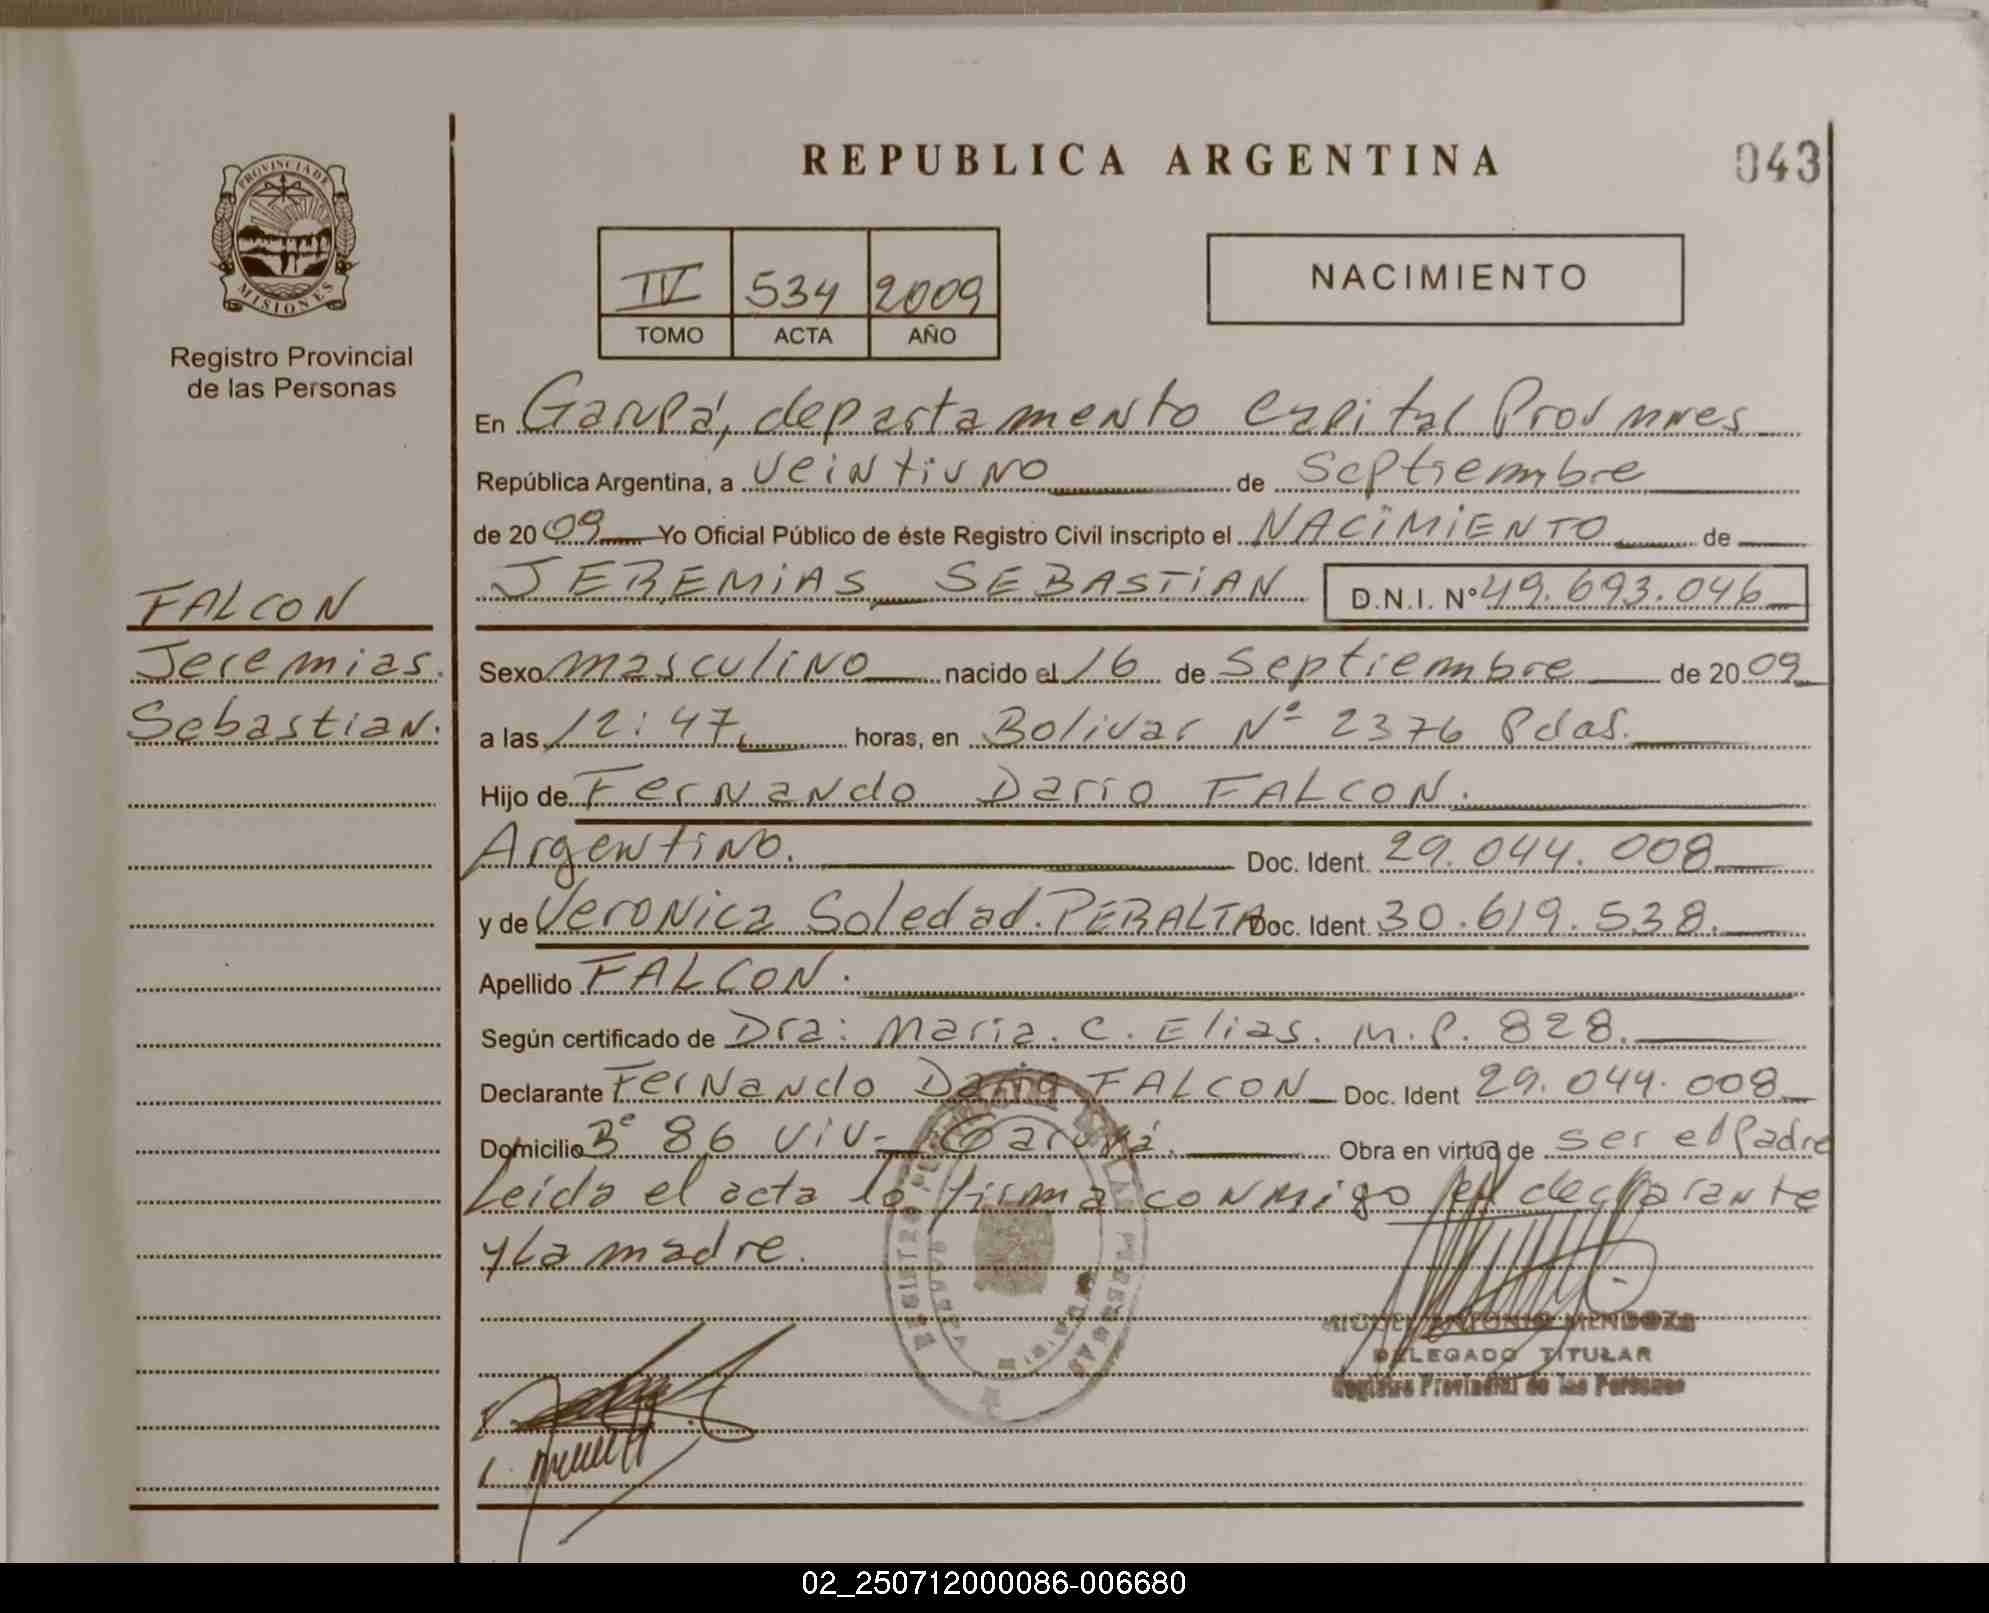 REPUBLICA ARGENTINA
043
PROVINCIA DE
MISIONES
Registro Provincial
de las Personas
IV 534 2009
TOMO ACTA AÑO
NACIMIENTO
En Garupá, departamento Capital Prov mnes
República Argentina, a veintiuno de Septiembre
de 2009 Yo Oficial Público de éste Registro Civil inscripto el NACIMIENTO de
JEREMIAS SEBASTIAN D.N.I. N° 49.693.046
FALCON
Jeremias.
Sebastian.
Sexo masculino nacido el 16 de Septiembre de 2009
a las 12:47 horas, en Bolivar Nº 2376 Pdas.
Hijo de Fernando Dario FALCON.
Argentino. Doc. Ident. 29.044.008
y de Veronica Soledad. PERALTA Doc. Ident. 30.619.538.
Apellido FALCON.
Según certificado de Dra: Maria. C. Elias. M.P. 828.
Declarante Fernando Dario FALCON Doc. Ident 29.044.008
Domicilio B° 86 viv- Garupá. Obra en virtud de ser el Padre
Leida el acta la firma conmigo el declarante
y la madre.
REGISTRO PROVINCIAL DE LAS PERSONAS
MIGUEL ANTONIO MENDOZA
DELEGADO TITULAR
Registro Provincial de las Personas
02_250712000086-006680